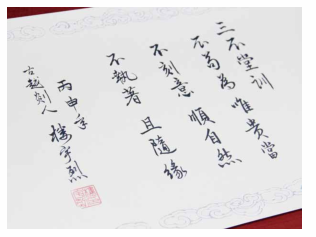 三不堂訓
不苟為 唯貴當
不刻意 順自然
不執著 且隨緣
丙申年
古越剡人 樓宇烈